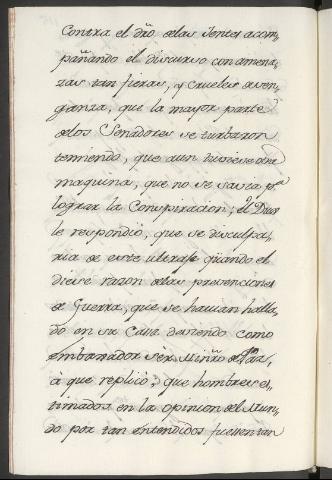 Contra el dr̃o delas Jentes acom,,
pañando el discurso con amena,,
zas tan fieras, y crueles de ven,,
ganza, que la mayor parte
delos Senadores se turbaron
temiendo, que aun tuviese otra
maquina, que no se savia p.ᵃ
lograr la Conspiracion; el Dux
le respondió, que se disculpa,,
ria de este ultraje quando el
diese razon delas prevenciones
de Guerra, que se havian halla,,
do en su Casa deviendo como
embaxador ser Minr̃o de Paz,
à que replicò; que hombres es,,
timados en la opinion del Mun,,
do por tan entendidos fuesen tan